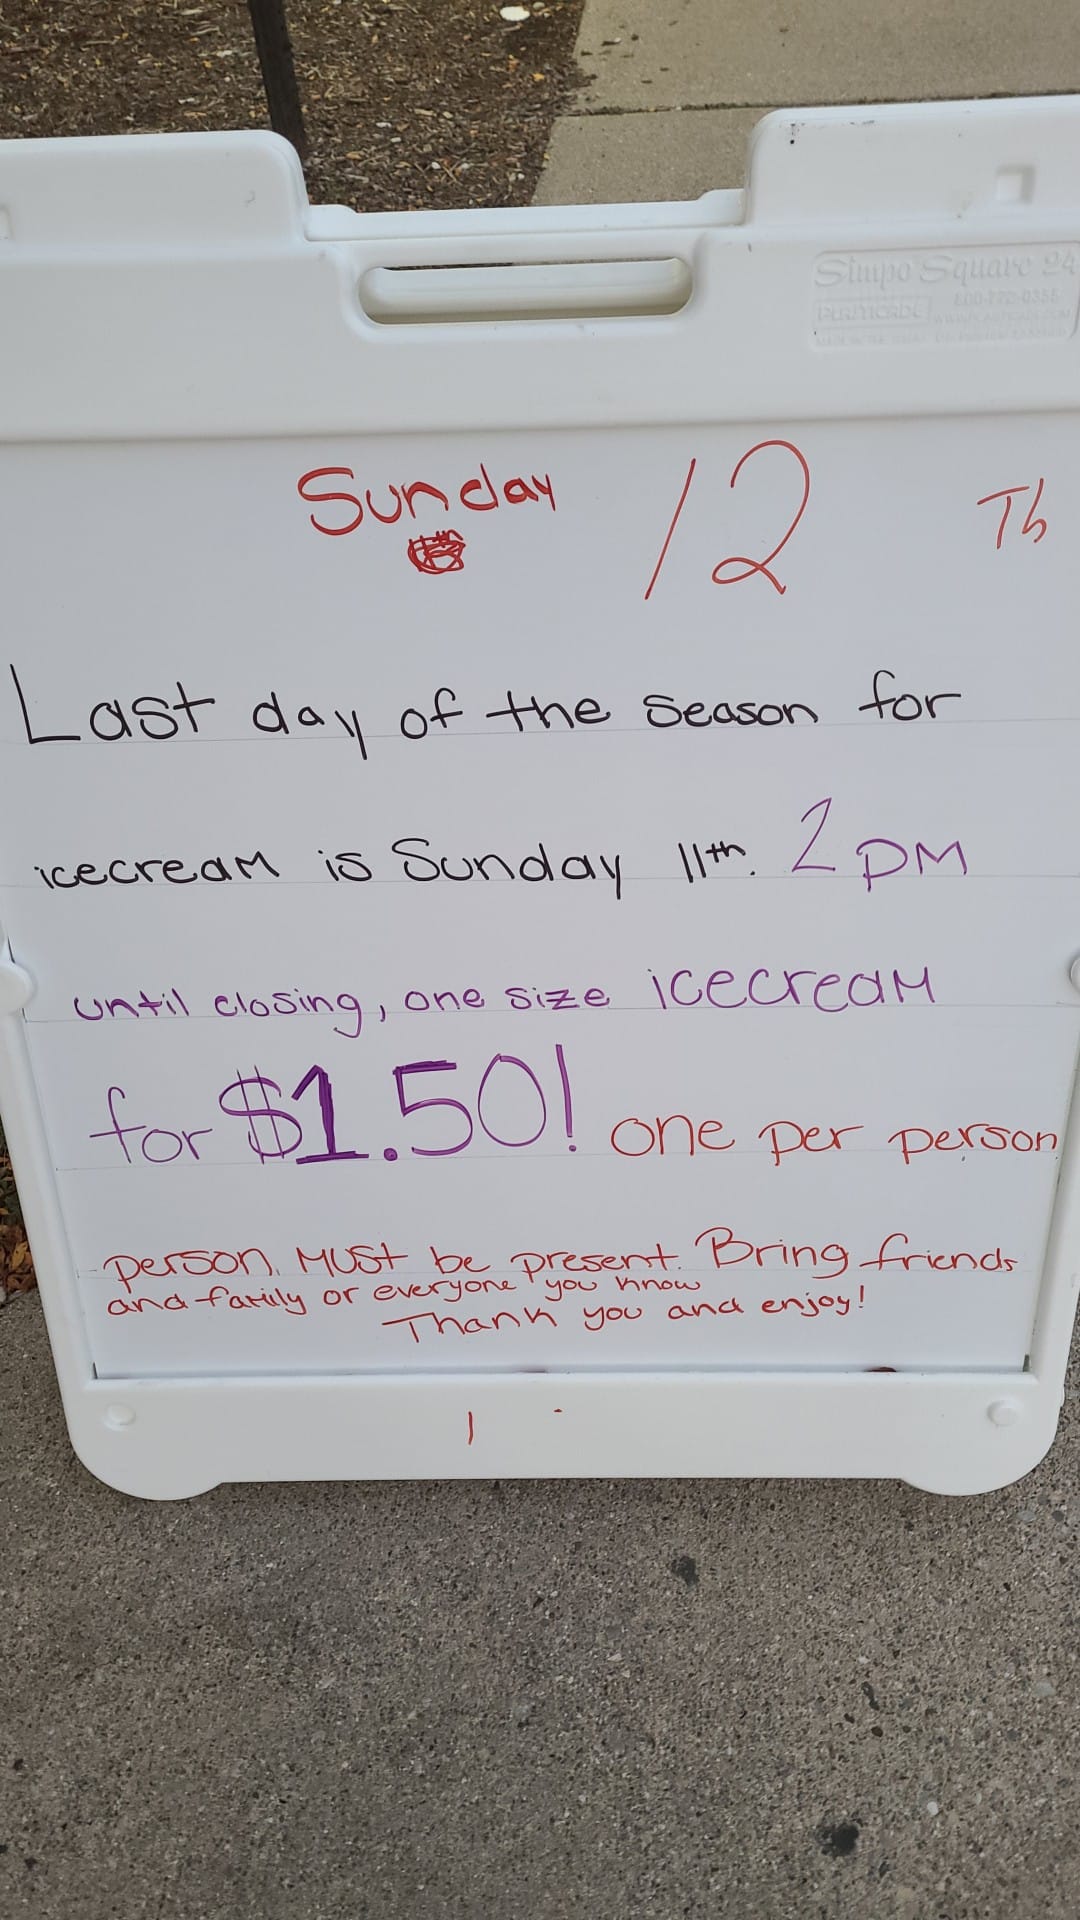 Simpo Square 24
PLASTICADE 800-772-0355
Sunday 12 Th
Last day of the season for
icecream is Sunday 11th. 2 PM
until closing, one size icecream
for $1.50! one per person
person. MUST be present. Bring friends
and family or everyone you know
Thank you and enjoy!